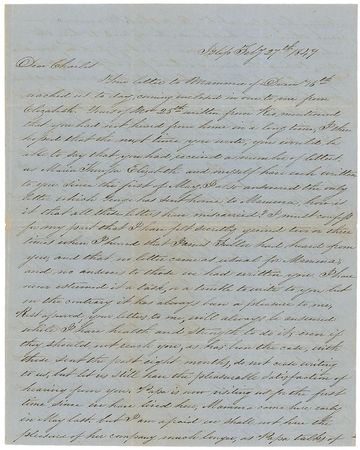 Islip Feby 27th 1847
Dear Charles
Your letter to Mamma of Decem 15th
reached us to day, coming enclosed in one to me from
Elizabeth. Yours of Nov 25th written from Rio, mentioned
that you had not heard from home in a long time, I then
hoped that the next time you wrote, you would be
able to say that you had received a number of letters,
as Maria Elizabeth and myself have each written
to you since the first of May, I also answered the only
letter which has sent home to Mamma, how is
it that all these letters have miscarried? I must confess
for my part that I have felt secretly grieved two or three
times when I heard that had heard from
you, and that no letter came as usual for Mamma,
and no answers to those we had written you. I have
never esteemed it a task, or a trouble to write to you, but
on the contrary it has always been a pleasure to me,
Rest assured, your letters to me, will always be answered
while I have health and strength to do it, even if
they should not reach you, as has been the case, with
those sent the past eight months, do not cease writing
to us, but let us still have the pleasurable satisfaction of
hearing from you. Papa is now visiting us for the first
time since we have lived here, Mamma came here early
in May last. but I am afraid we shall not have the
pleasure of her company much longer, as Papa talks of